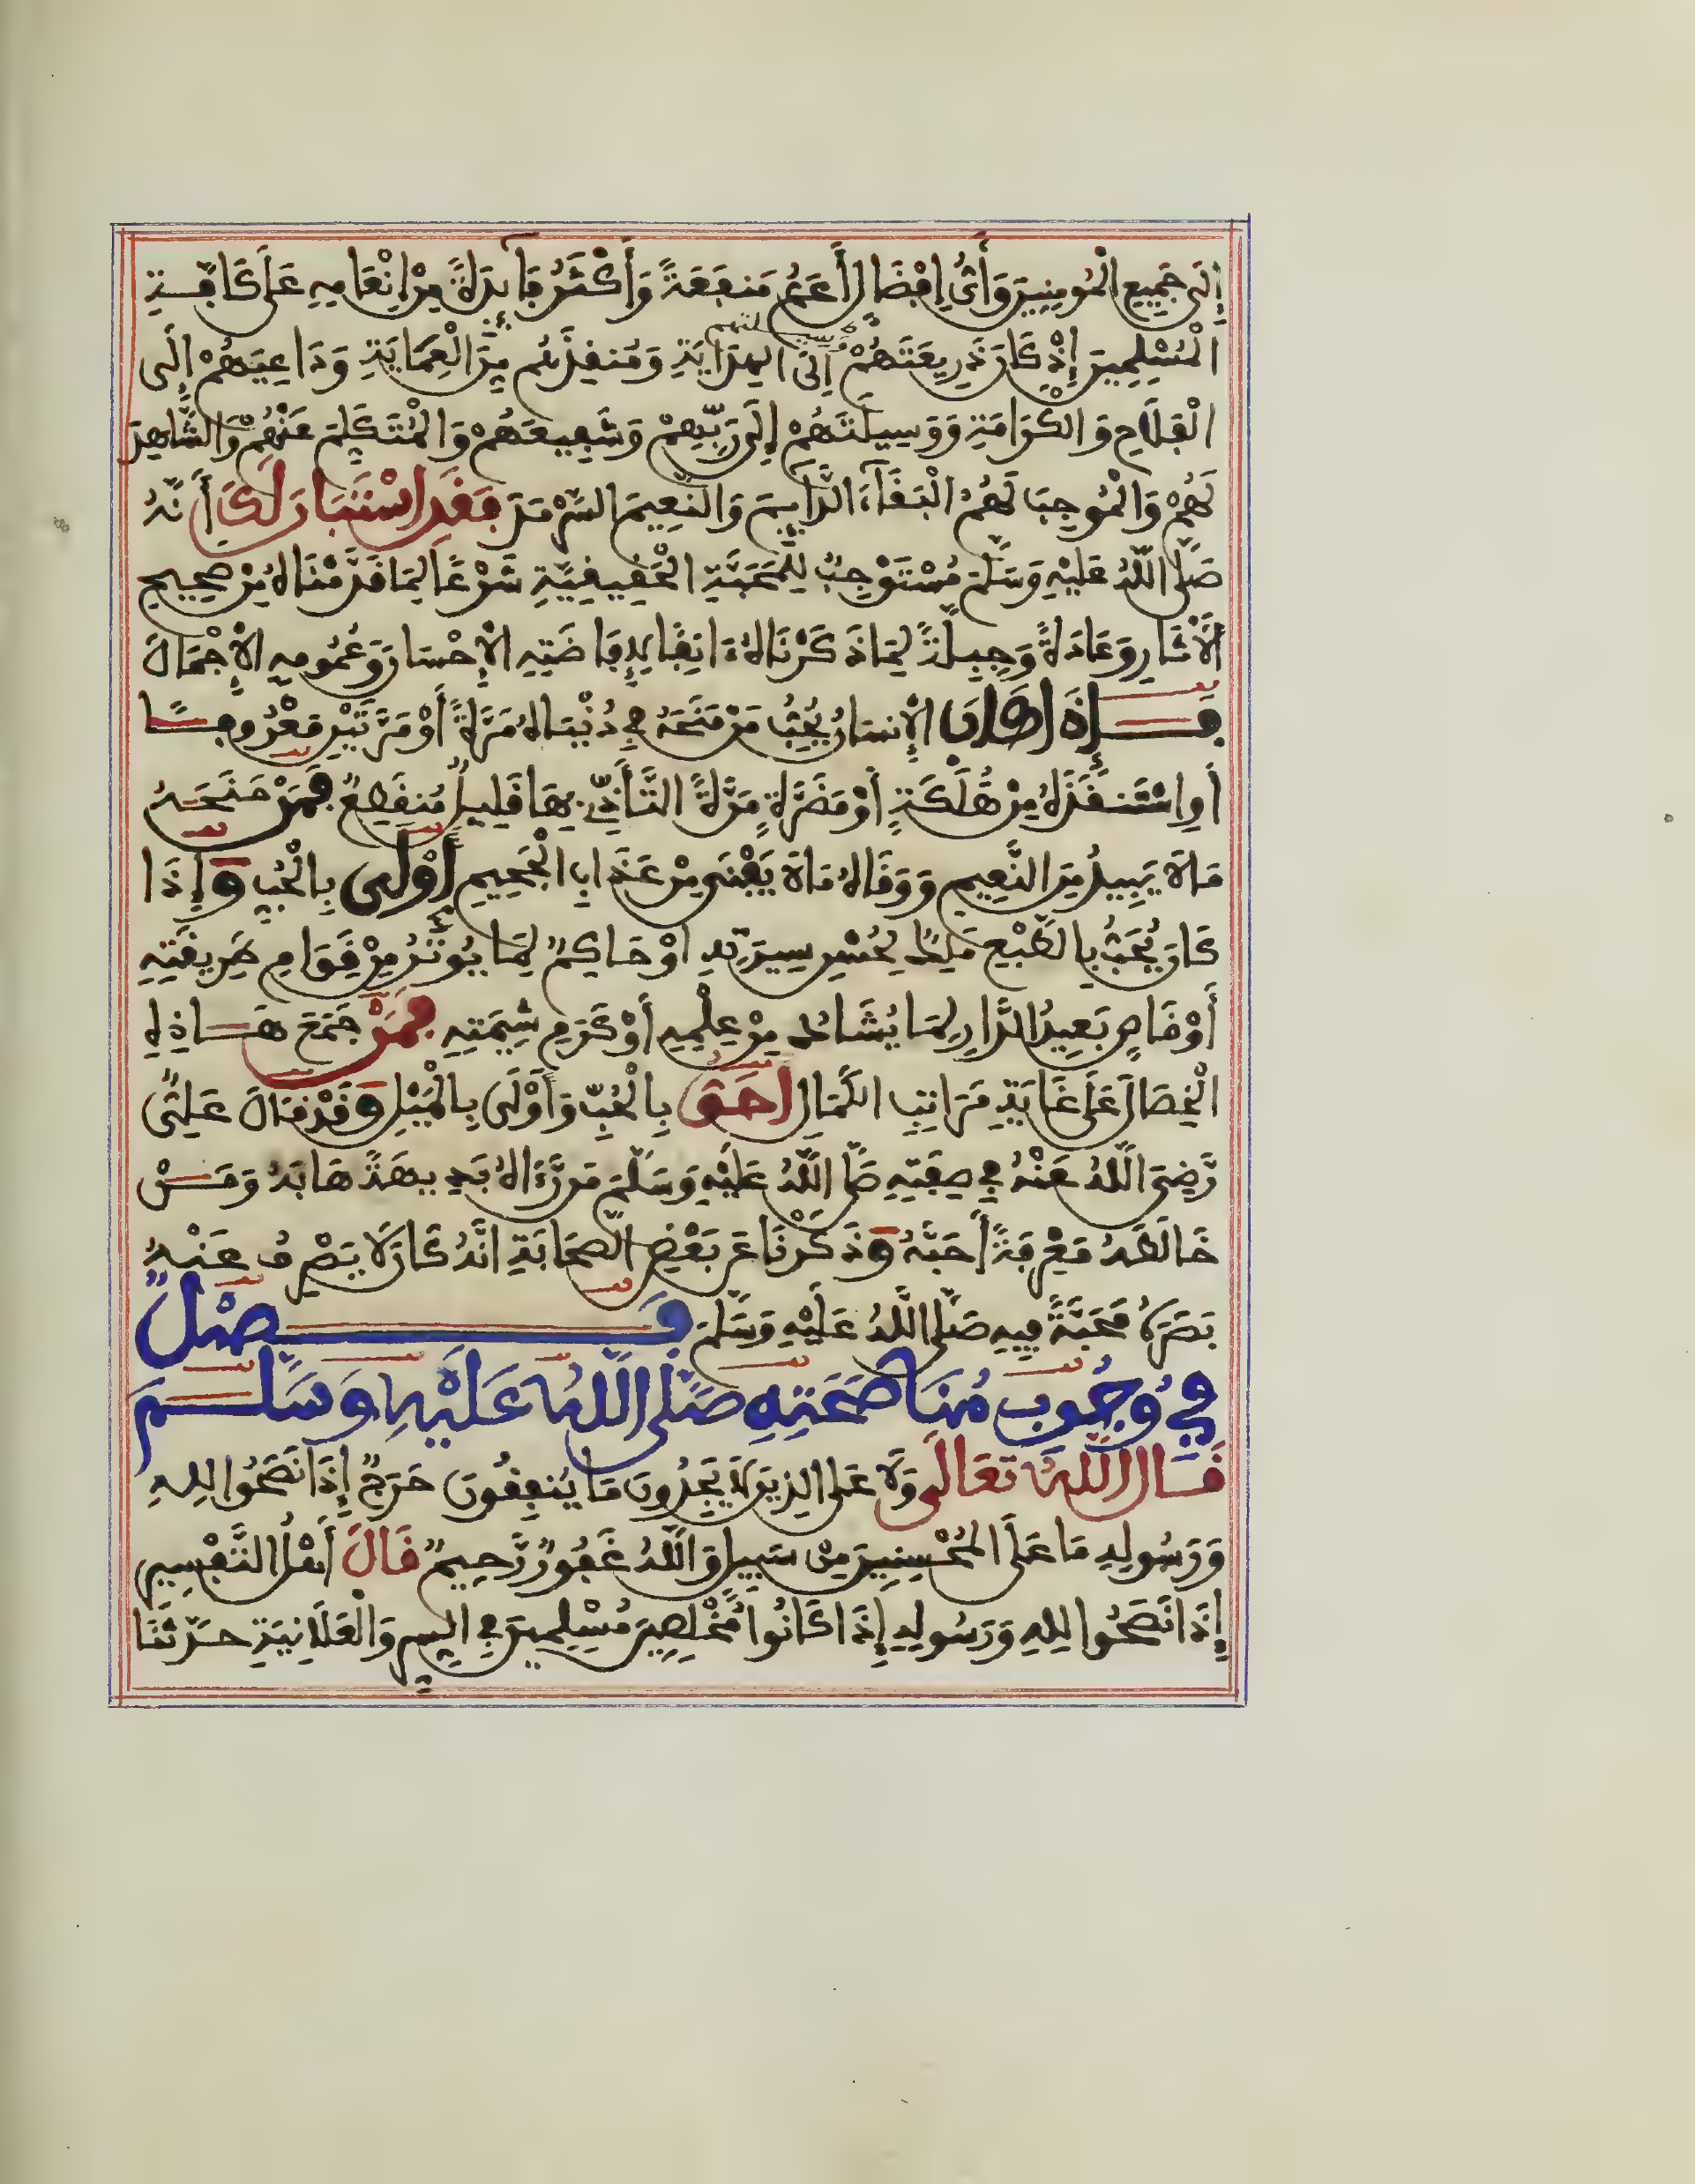 إِلَى جَمِيعِ الْمُومِنِينَ وَأَيُّ إِفْضَالٍ أَعَمُّ مَنفَعَةً وَأَكْثَرُ فَايِدَةً مِنْ إِنْعَامِهِ عَلَى كَافَّةِ
الْمُسْلِمِينَ إِذْ كَانَ ذَرِيعَتَهُمْ إِلَى الهِدَايَةِ وَمُنقِذَهُم مِنَ الْعِمَايَةِ وَدَاعِيَهُمْ إِلَى
الْفَلَاحِ وَالكَرَامَةِ وَوَسِيلَتَهُمْ إِلَى رَبِّهِمْ وَشَفِيعَهُمْ وَالْمُتَكَلِّمَ عَنْهُمْ وَالشَّاهِدَ
لَهُمْ وَالْمُوجِبَ لَهُمُ الْبَقَاءَ الدَّايِمَ وَالنَّعِيمَ السَّرْمَدَ فَقَدِ اسْتَبَانَ لَكَ أَنَّهُ
صَلَّى اللَّهُ عَلَيْهِ وَسَلَّمَ مُسْتَوْجِبٌ لِلْمَحَبَّةِ الْحَقِيقِيَّةِ شَرْعًا لِمَا قَدَّمْنَاهُ مِنْ صَحِيحِ
الْآثَارِ وَعَادَةً وَجِبِلَّةً لِمَا ذَكَرْنَاهُ ءَانِفًا لِإِفَاضَتِهِ الْإِحْسَانَ وَعُمُومِهِ الْإِجْمَالَ
فَإِذَا كَانَ الْإِنسَانُ يُحِبُّ مَنْ مَنَحَهُ فِي دُنْيَاهُ مَرَّةً أَوْ مَرَّتَيْنِ مَعْرُوفًا
أَوِ اسْتَنقَذَهُ مِنْ هَلَكَةٍ أَوْ مَضَرَّةٍ مَرَّةً التَّأَذِّي بِهَا قَلِيلٌ مُنقَطِعٌ فَمَنْ مَنَحَهُ
مَا لَا يَبِيدُ مِنَ النَّعِيمِ وَوَقَاهُ مَا لَا يَفْنَى مِنْ عَذَابِ الْجَحِيمِ أَوْلَى بِالْحُبِّ وَإِذَا
كَانَ يُحَبُّ بِالطَّبْعِ مَلِكٌ لِحُسْنِ سِيرَتِهِ أَوْ حَاكِمٌ لِمَا يُوثَرُ مِنْ قِوَامِ طَرِيقَتِهِ
أَوْ قَاصٍ بَعِيدُ الدَّارِ لِمَا يُشَادُ مِنْ عِلْمِهِ أَوْ كَرَمِ شِيمَتِهِ فَمَنْ جَمَعَ هَاذِهِ
الْخِصَالَ عَلَى غَايَةِ مَرَاتِبِ الكَمَالِ أَحَقُّ بِالْحُبِّ وَأَوْلَى بِالْمَيْلِ وَقَدْ قَالَ عَلِيٌّ
رَّضِيَ اللَّهُ عَنْهُ فِي صِفَتِهِ صَلَّى اللَّهُ عَلَيْهِ وَسَلَّمَ مَن رَّءَاهُ بَدِيهَةً هَابَهُ وَمَنْ
خَالَطَهُ مَعْرِفَةً أَحَبَّهُ وَذَكَرْنَا عَن بَعْضِ الصَّحَابَةِ أَنَّهُ كَانَ لَا يَصْرِفُ عَنْهُ
بَصَرَهُ مَحَبَّةً فِيهِ صَلَّى اللَّهُ عَلَيْهِ وَسَلَّمَ فَصْلٌ
فِي وُجُوبِ مُنَاصَحَتِهِ صَلَّى اللَّهُ عَلَيْهِ وَسَلَّمَ
قَالَ اللَّهُ تَعَالَى وَلَا عَلَى الذِينَ لَا يَجِدُونَ مَا يُنفِقُونَ حَرَجٌ إِذَا نَصَحُوا لِلهِ
وَرَسُولِهِ مَا عَلَى الْمُحْسِنِينَ مِن سَبِيلٍ وَاللَّهُ غَفُورٌ رَّحِيمٌ قَالَ أَهْلُ التَّفْسِيرِ
إِذَا نَصَحُوا لِلهِ وَرَسُولِهِ إِذَا كَانُوا مُخْلِصِينَ مُسْلِمِينَ فِي السِّرِّ وَالْعَلَانِيَةِ حَدَّثَنَا